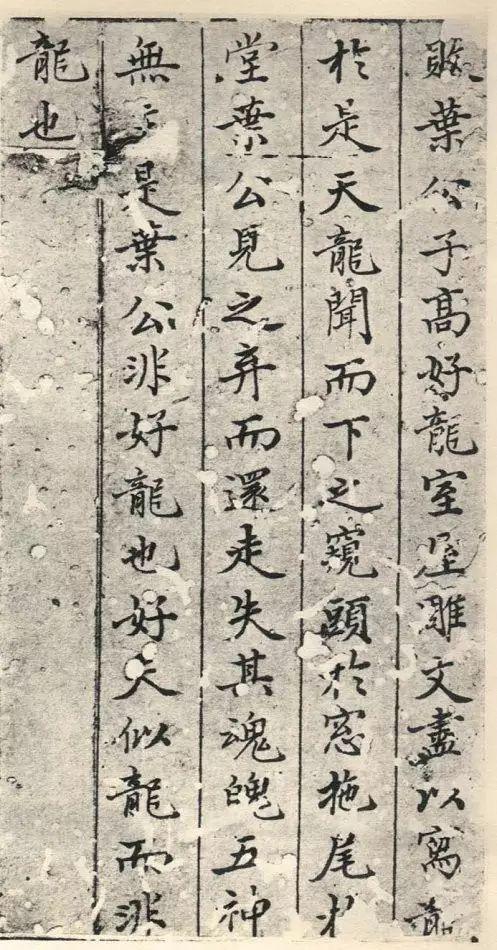 葉公子高好龍室屋雕文盡以寫龍
於是天龍聞而下之窺頭於窓拖尾於
堂葉公見之弃而還走失其魂魄五神
無主是葉公非好龍也好夫似龍而非
龍也